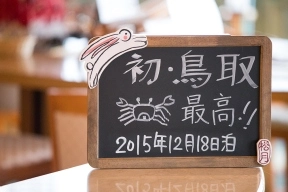 初・鳥取
最高!!
2015年12月18日泊